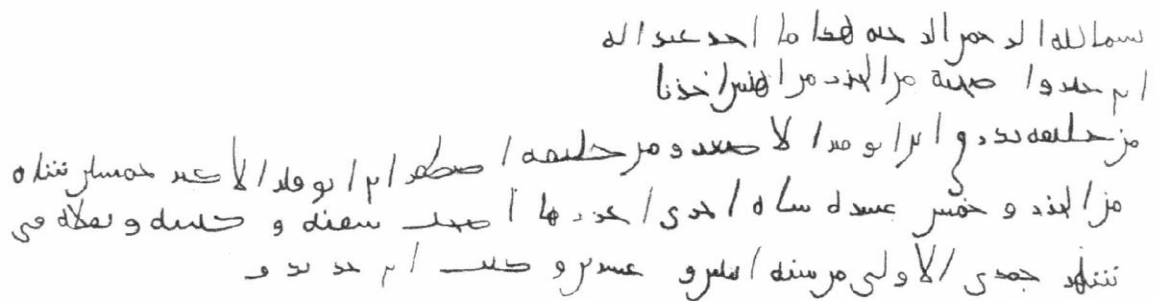 بسم الله الرحمن الرحيم هذا ما اخذ عبد اله
ابن جبر و اصحبه من الجزر من اهنس اخذنا
من خليفه تدراق ابن ابو قير الاصغر ومن خليفه اصطفر ابن ابو قير الاكبر خمسين شاه
من الجزر و خمس عشره شاه اخرى اجزرها اصحب سفنه و كتئبه و ثقلاه في
شهر جمدى الاولى من سنه اثنين و عشرين و كتب ابن حديدو